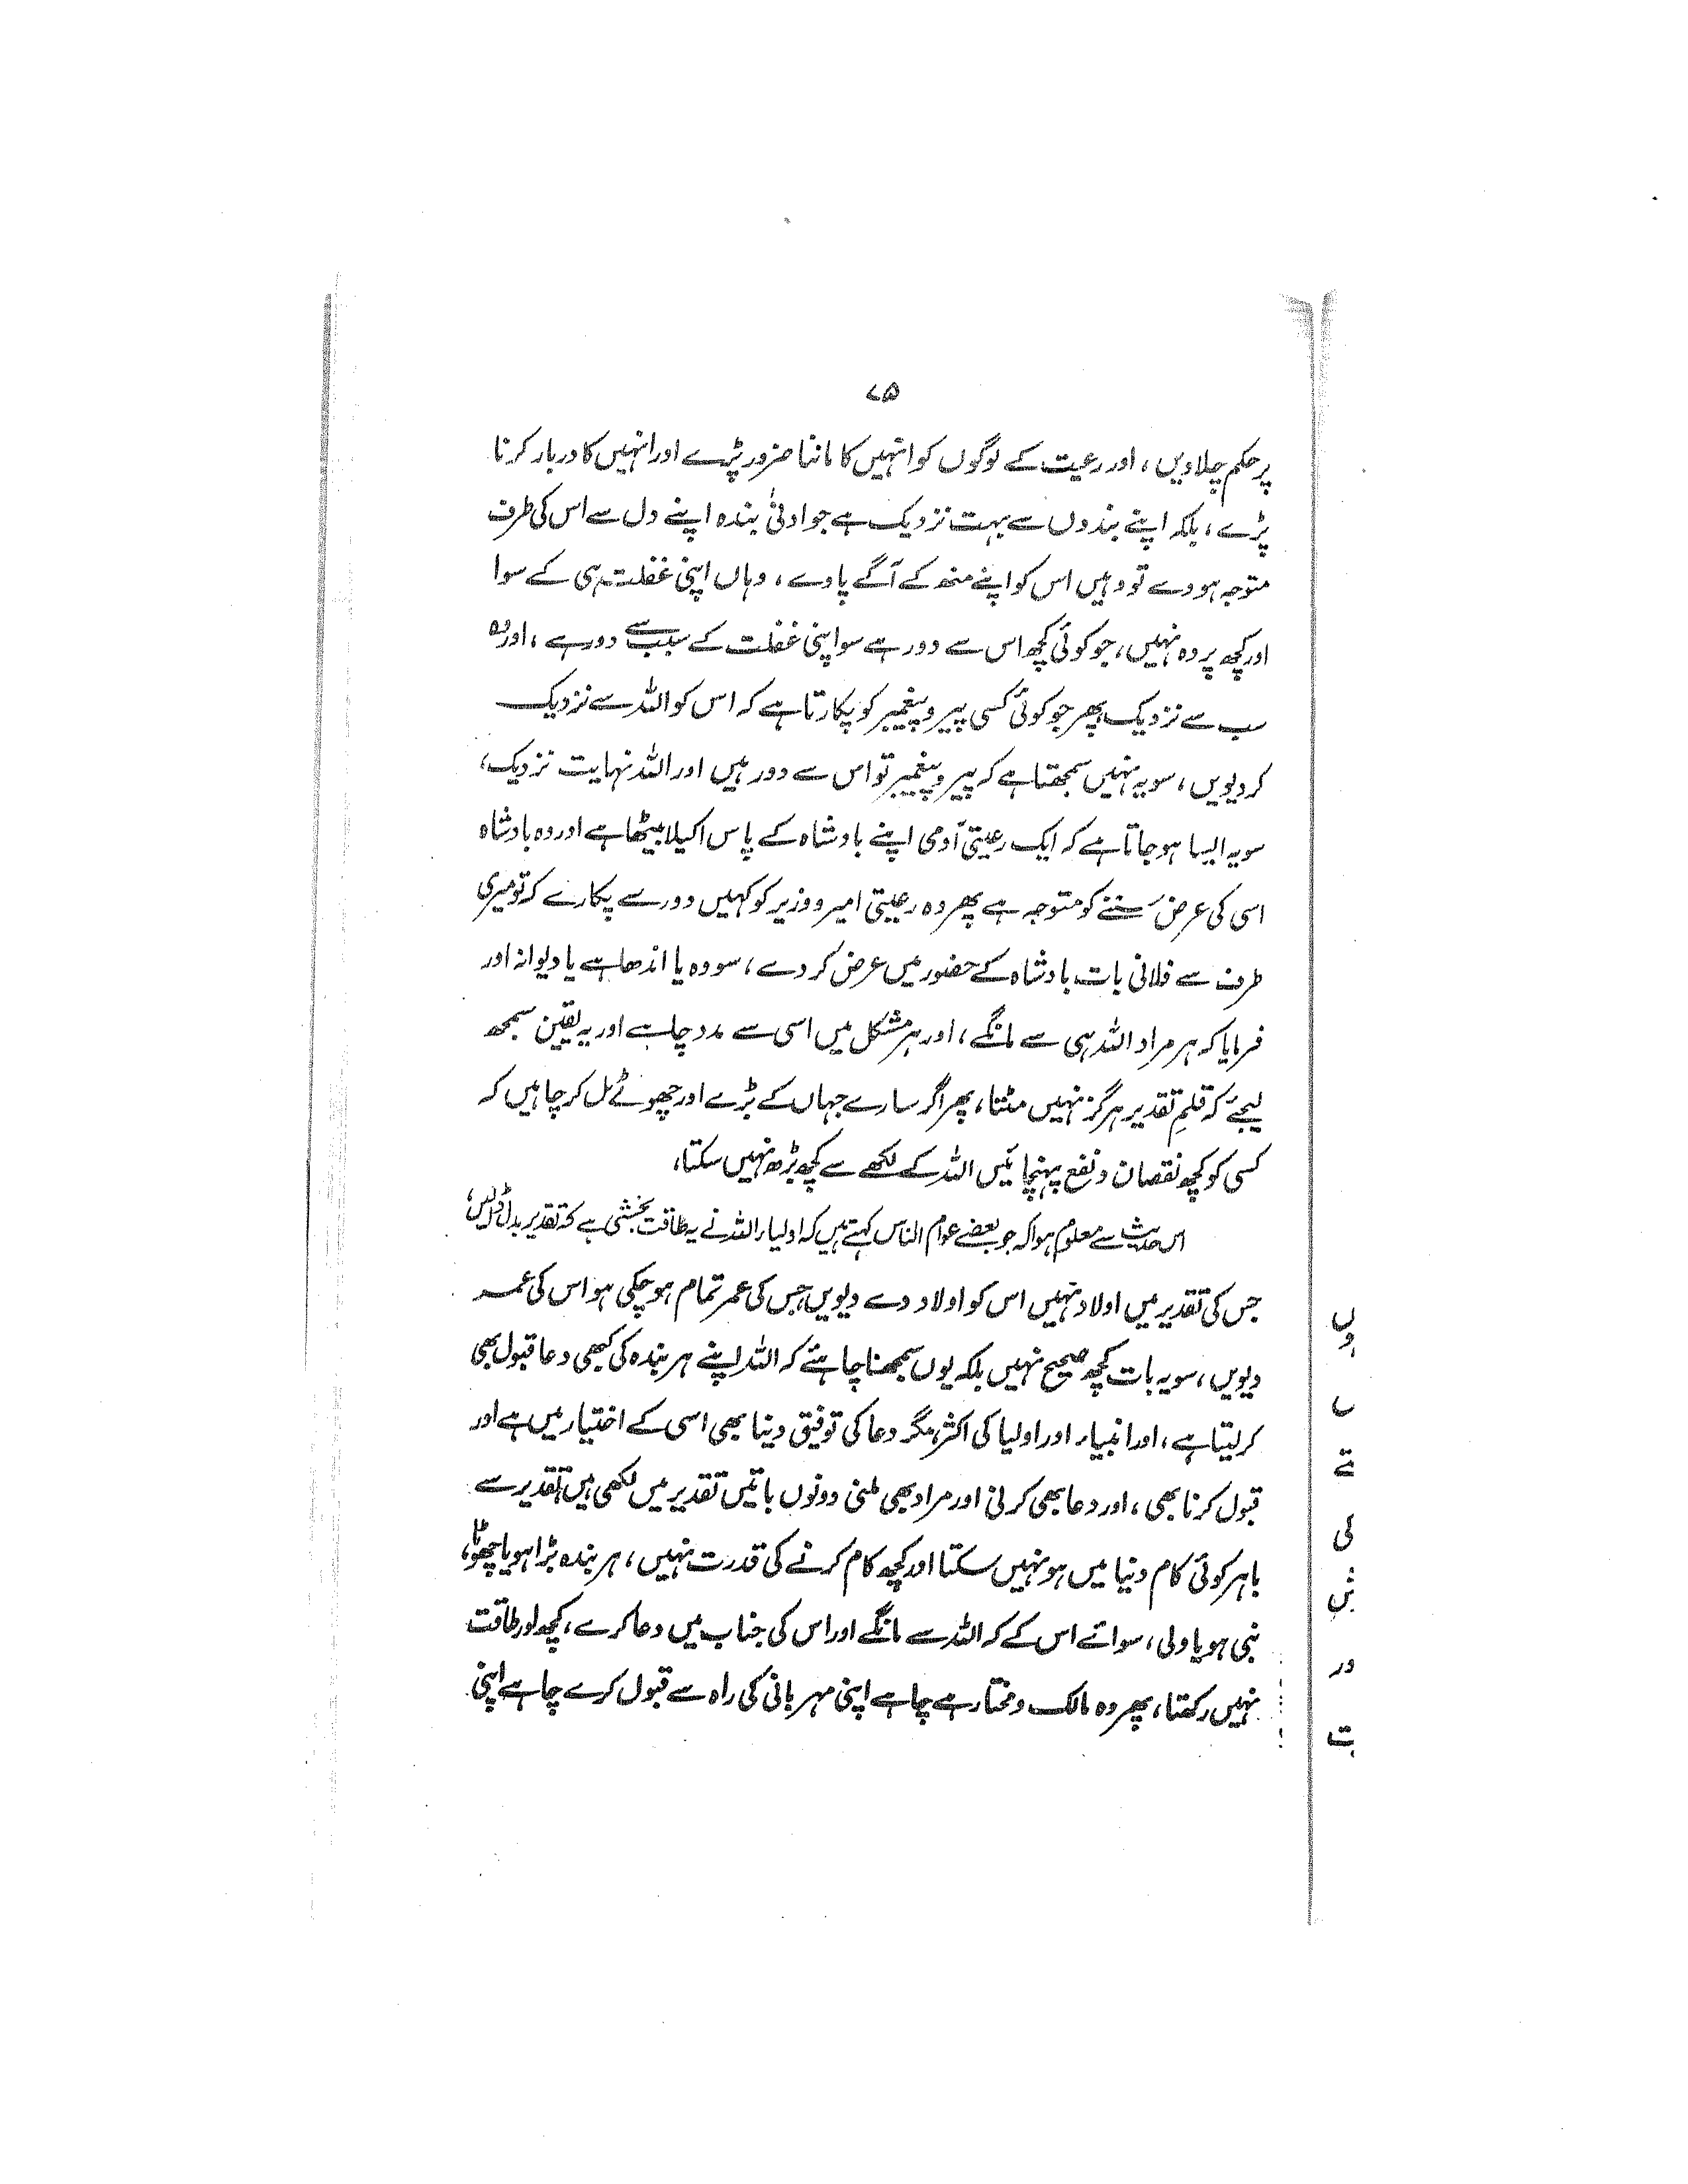 ۷۵
پر حکم چلاویں، اور رعیت کے لوگوں کو انہیں کا ماننا ضرور پڑے اور انہیں کا دربار کرنا
پڑے، بلکہ اپنے بندوں سے بہت نزدیک ہے جو ادنیٰ بندہ اپنے دل سے اس کی طرف
متوجہ ہووے تو وہیں اس کو اپنے منھ کے آگے پاوے، وہاں اپنی غفلت ہی کے سوا
اور کچھ پردہ نہیں، جو کوئی کچھ اس سے دور ہے سو اپنی غفلت کے سبب سے دور ہے، اور وہ
سب سے نزدیک پھر جو کوئی کسی پیر و پیغمبر کو پکارتا ہے کہ اس کو اللہ سے نزدیک
کردیویں، سو یہ نہیں سمجھتا ہے کہ پیر و پیغمبر تو اس سے دور ہیں اور اللہ نہایت نزدیک،
سو یہ ایسا ہو جاتا ہے کہ ایک رعیتی آدمی اپنے بادشاہ کے پاس اکیلا بیٹھا ہے اور وہ بادشاہ
اسی کی عرض سننے کو متوجہ ہے پھر وہ رعیتی امیر و وزیر کو کہیں دور سے پکارے کہ تو میری
طرف سے فلانی بات بادشاہ کے حضور میں عرض کر دے، سو وہ یا اندھا ہے یا دیوانہ اور
فرمایا کہ ہر مراد اللہ ہی سے مانگے، اور ہر مشکل میں اسی سے مدد چاہے اور یہ یقین سمجھ
لیجئے کہ قلمِ تقدیر ہرگز نہیں مٹتا، پھر اگر سارے جہاں کے بڑے اور چھوٹے مل کر چاہیں کہ
کسی کو کچھ نقصان و نفع پہنچائیں اللہ کے لکھے سے کچھ بڑھ نہیں سکتا،
اس حدیث سے معلوم ہوا کہ جو بعضے عوام الناس کہتے ہیں کہ اولیاء اللہ نے یہ طاقت بخشی ہے کہ تقدیر بدل ڈالیں،
جس کی تقدیر میں اولاد نہیں اس کو اولاد دے دیویں جس کی عمر تمام ہو چکی ہو اس کی عمر
دیویں، سو یہ بات کچھ صحیح نہیں بلکہ یوں سمجھنا چاہئے کہ اللہ اپنے ہر بندہ کی کبھی دعا قبول بھی
کر لیتا ہے، اور انبیاء اور اولیا کی اکثر، مگر دعا کی توفیق دینا بھی اسی کے اختیار میں ہے اور
قبول کرنا بھی، اور دعا بھی کرنی اور مراد بھی ملنی دونوں باتیں تقدیر میں لکھی ہیں تقدیر سے
باہر کوئی کام دنیا میں ہو نہیں سکتا اور کچھ کام کرنے کی قدرت نہیں، ہر بندہ بڑا ہو یا چھوٹا،
نبی ہو یا ولی، سوائے اس کے کہ اللہ سے مانگے اور اس کی جناب میں دعا کرے، کچھ اور طاقت
نہیں رکھتا، پھر وہ مالک و مختار ہے چاہے اپنی مہربانی کی راہ سے قبول کرے چاہے اپنی